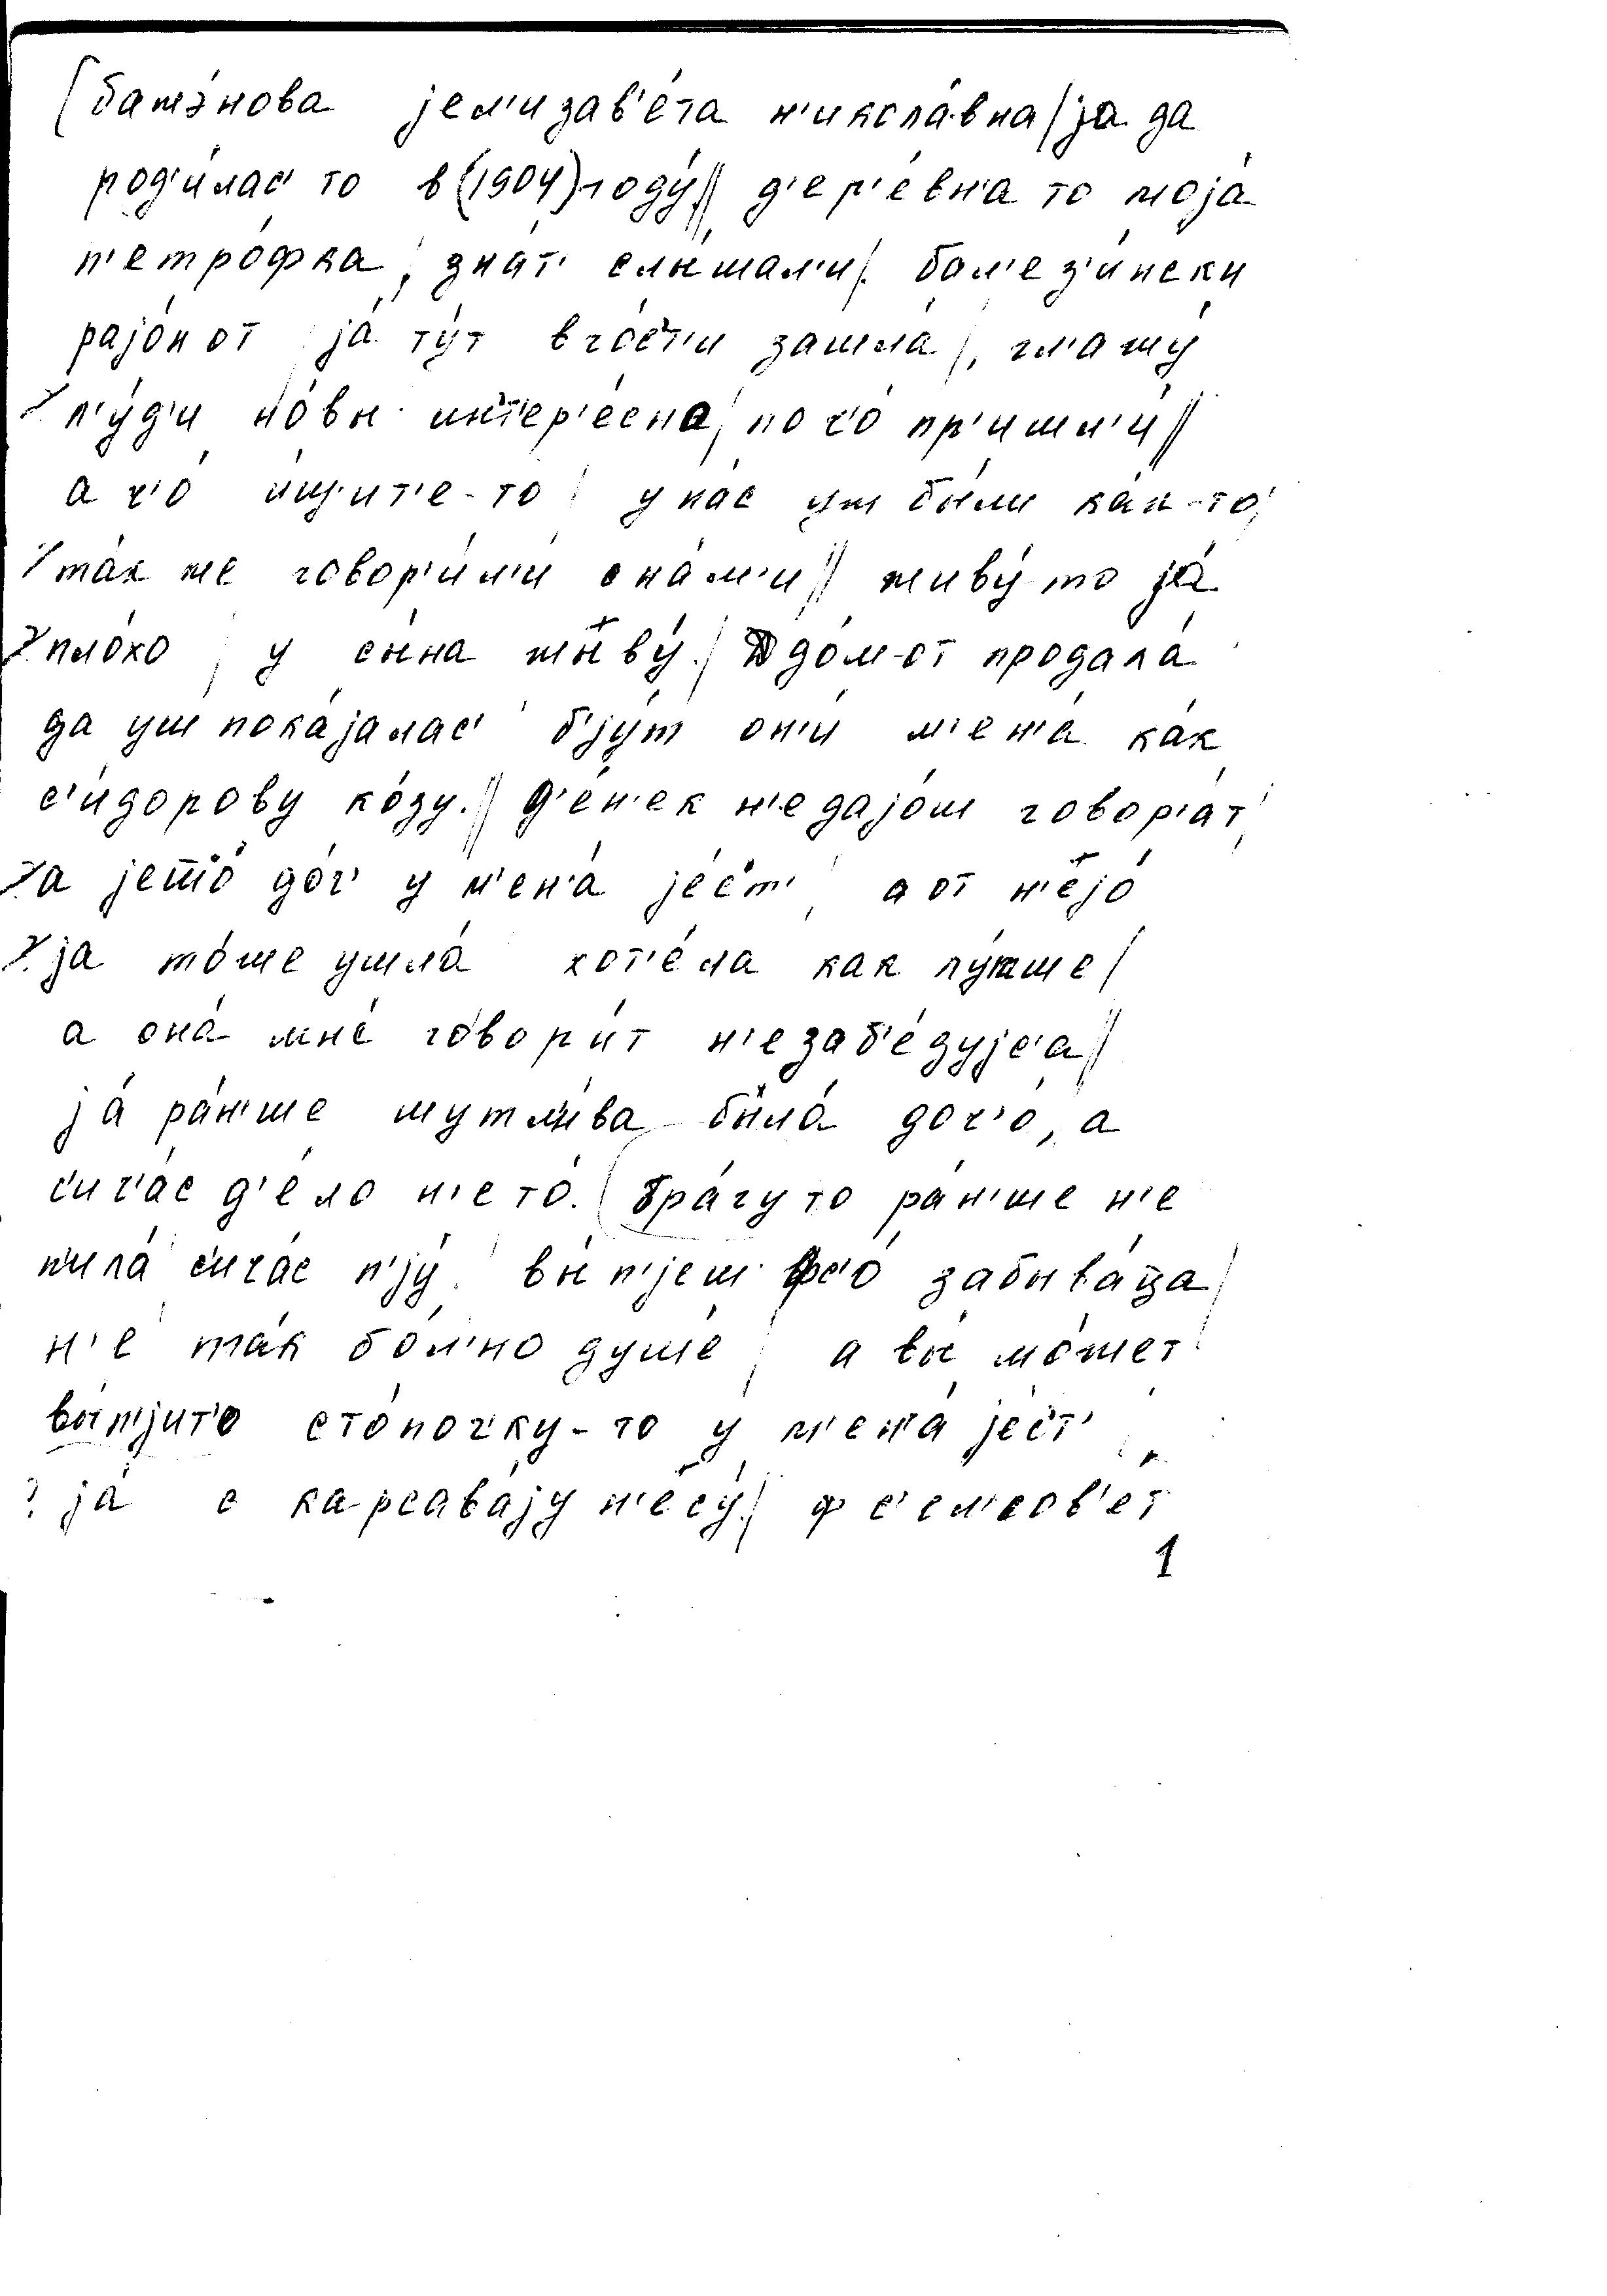 [бажэ́нова јел'изав'е́та н'икола́вна/ја да
род'и́лас' то в(1904)году́// д'ер'е́вн'а то моја́
п'етро́фка, зна́т' слы́шал'и/. бал'ез'и́нски
рајо́н от ја́ ту́т в го́с'т'и зашла́/, гл'ажу́
л'у́д'и но́вы интер'е́сно, по ч'о́ пр'ишл'и́//
а ч'о́ и́щ'ит'е-то у на́с уж бы́ли ка́к-то,
та́к же говор'и́л'и с на́м'и// живу́ то ја́
пло́хо, у сы́на жыву́./ до́м-от продала́
да уш пока́јалас' б'ју́т он'и́ м'ен'а́ ка́к
с'и́дорову ко́зу.// д'е́н'ек н'е дајо́ш говор'а́т,
а јешшо́ до́ч' у м'ен'а́ је́с'т', а от н'ејо́
ја то́же ушла́ хот'е́ла как лу́тше/
а она́ мне́ говори́т н'е заб'е́дујс'а//
ја́ ра́н'ше шутл'и́ва была́ доч'о́, а
с'ич'а́с д'е́ло н'е то́. бра́гу то ра́н'ше н'е
пила́ с'ича́с п'ју́. вы́п'јеш фс'о́ забыва́ца/
н'е та́к бо́л'но душе́/ а вы́ мо́жет
вы́п'јит'о сто́поч'ку-то у м'ен'а́ је́с'т',
ја́ с карсава́ју н'есу́/ ф с'ел'сов'е́т
1